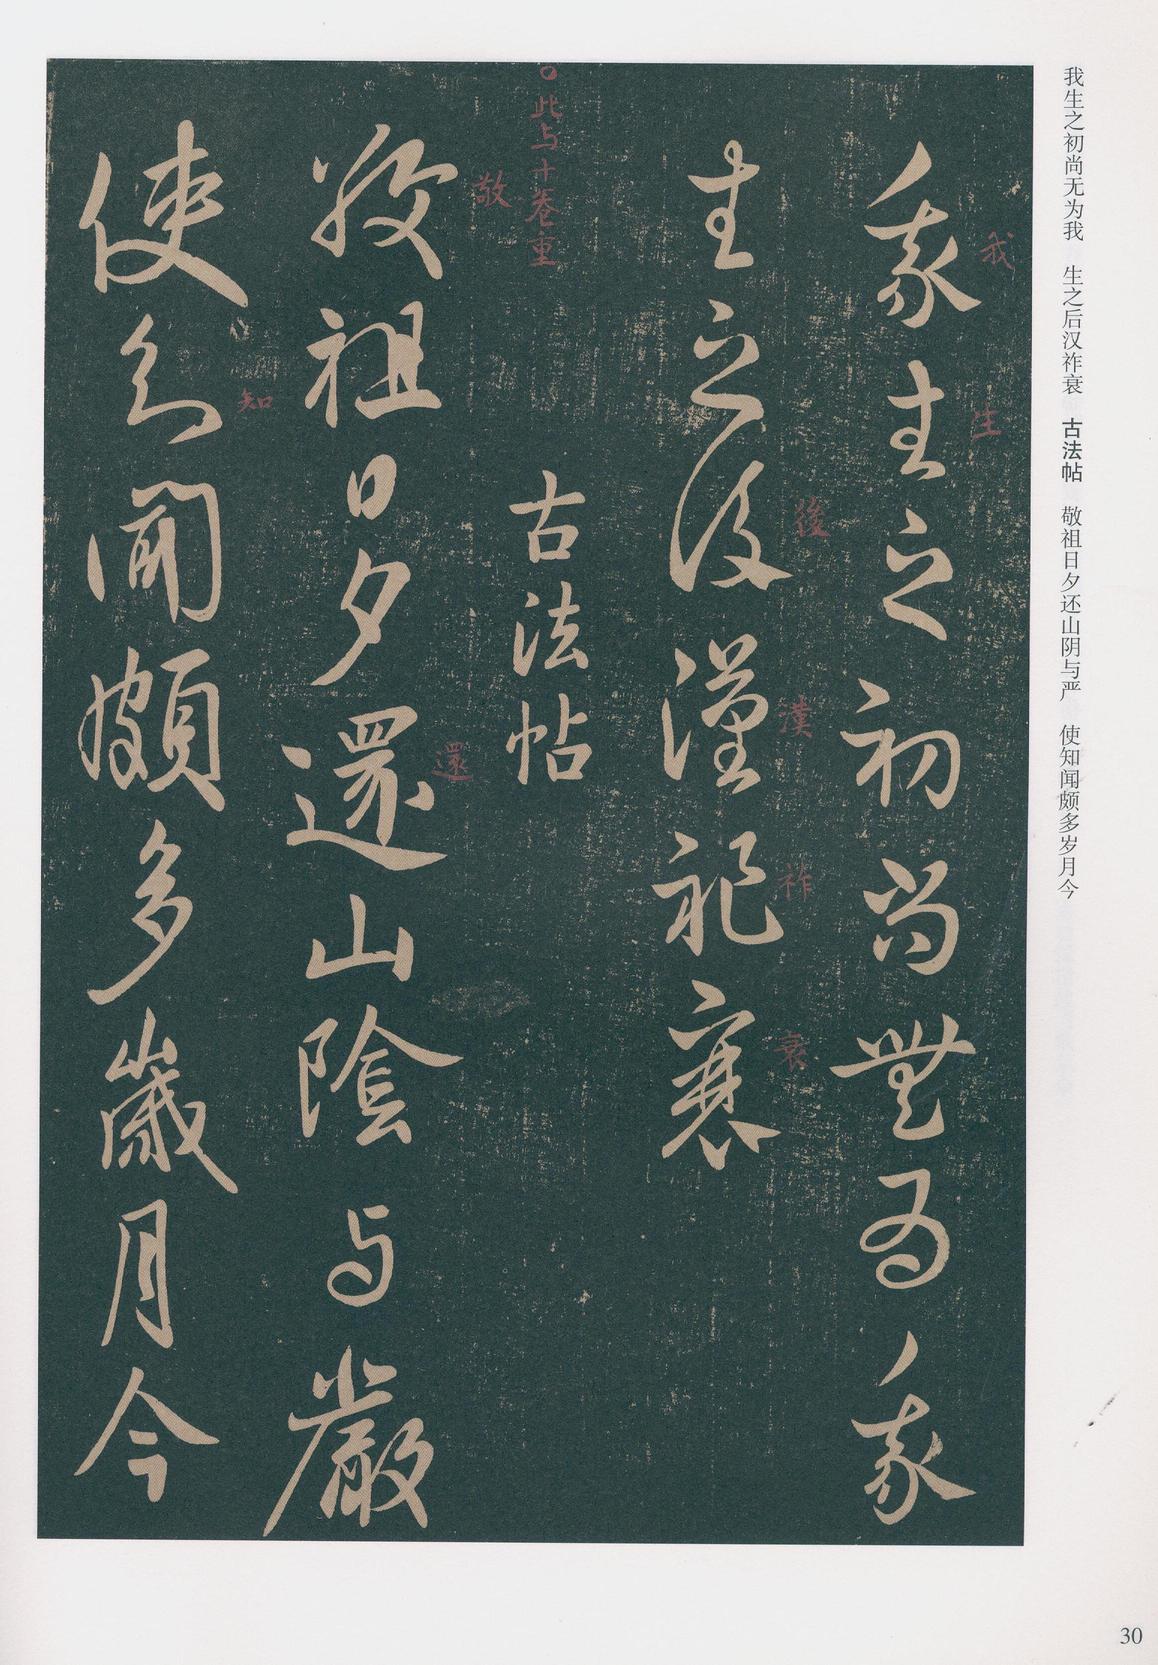 我生之初尚无为我　生之后汉祚衰　古法帖　敬祖日夕还山阴与严　使知闻颇多岁月今
我生之初尚無為我
生之後漢祚衰
古法帖
敬祖日夕還山陰與嚴
使知聞頗多歲月今
我
生
後
漢
祚
衰
此与十卷重
敬
還
知
30